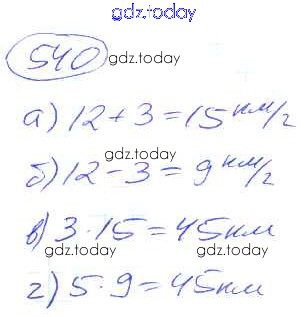 gdz.today
540
gdz.today
а) 12 + 3 = 15 км/г
gdz.today
б) 12 - 3 = 9 км/г
в) 3 · 15 = 45 км
gdz.today gdz.today
г) 5 · 9 = 45 км